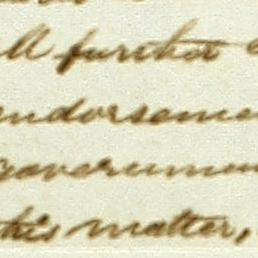 ll further
endorseme
governmen
this matter,